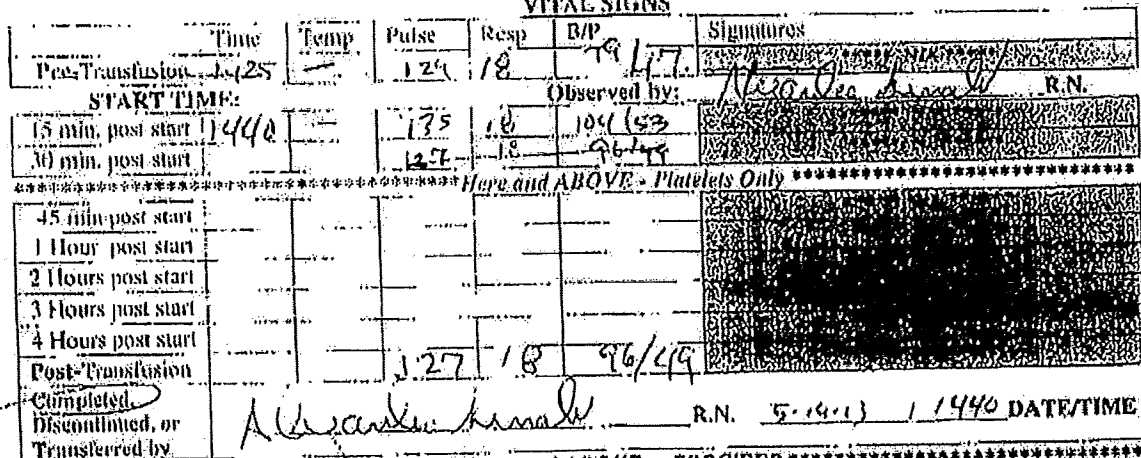 VITAL SIGNS
Time Temp Pulse Resp B/P Signatures
Pre-Transfusion 1425 — 124 18 79/47 ***** N/A *****
START TIME: Observed by: R.N.
15 min. post start 1440 135 18 104/53
30 min. post start 127 18 96/49
Here and ABOVE - Platelets Only
45 min post start
1 Hour post start
2 Hours post start
3 Hours post start
4 Hours post start
Post-Transfusion 127 18 96/49
Completed,
Discontinued, or R.N. 5-14-13 / 1440 DATE/TIME
Transferred by